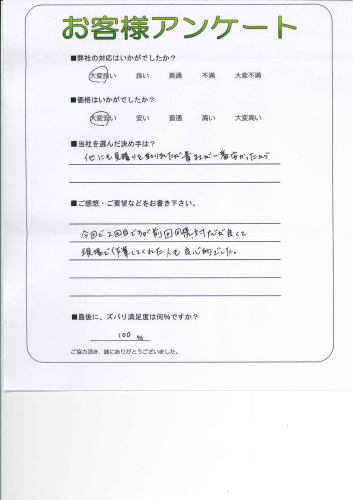 お客様アンケート
■弊社の対応はいかがでしたか？
大変良い 良い 普通 不満 大変不満
■価格はいかがでしたか？
大変安い 安い 普通 高い 大変高い
■当社を選んだ決め手は？
他にも見積りをとりましたが貴社が一番安かったから
■ご感想・ご要望などをお書き下さい。
今回で2回目ですが前回同様対応が良くて
現場で作業してくれた人も良心的でした。
■最後に、ズバリ満足度は何%ですか？
100 %
ご協力頂き、誠にありがとうございました。